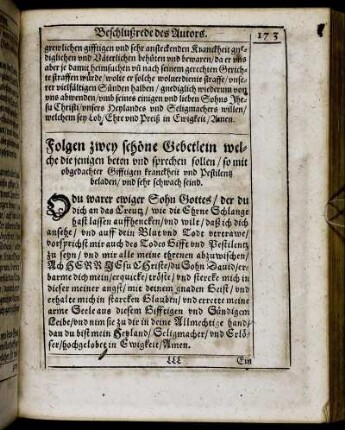 Beschlußrede des Autors. 173
grewlichen gifftigen vnd sehr ansteckenden Kranckheit gne-
diglichen vnd Väterlichen behüten vnd bewaren / da er vns
aber je damit heimsuchen vñ nach seinem gerechten Gerich-
te straffen würde / wolte er solche wolverdiente straffe / vnse-
rer vielfältigen Sünden halben / gnediglich wiederumb von
vns abwenden / vmb seines einigen vnd lieben Sohns Jhe-
su Christi / vnsers Heylandes vnd Seligmachers willen /
welchem sey Lob / Ehre vnd Preiß in Ewigkeit / Amen.
Folgen zwey schöne Gebetlein wel-
che die jenigen beten vnd sprechen sollen / so mit
obgedachter Gifftigen kranckheit vnd Pestilentz
beladen / vnd sehr schwach seind.
O du warer ewiger Sohn Gottes / der du
dich an das Creutz / wie die Ehrne Schlange
hast lassen auffhencken / vnd wilt / daß ich dich
ansehe / vnd auff dein Blut vnd Todt vertrawe /
vor sprichst mir auch des Todes Gifft vnd Pestilentz
zu seyn / vnd mir alle meine threnen abzuwischen /
Ach HERR JEsu CHriste / du Sohn David / er-
barme dich mein / erquicke / tröste / vnd stercke mich in
dieser meiner angst / mit deinem gnaden Geist / vnd
erhalte mich in starcken Glauben / vnd errette meine
arme Seele aus diesem Gifftigen vnd Sündigem
Leibe / vnd nim sie zu dir in deine Allmechtige hand /
dan du bist mein Heyland / Seligmacher / vnd Erlö-
ser / hochgelobet in Ewigkeit / Amen.
Ein